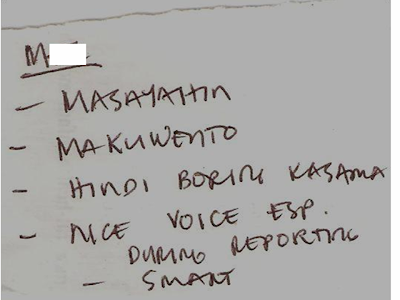 M
- MASAYAHIN
- MAKUWENTO
- HINDI BORING KASAMA
- NICE VOICE ESP.
DURING REPORTING
- SMART